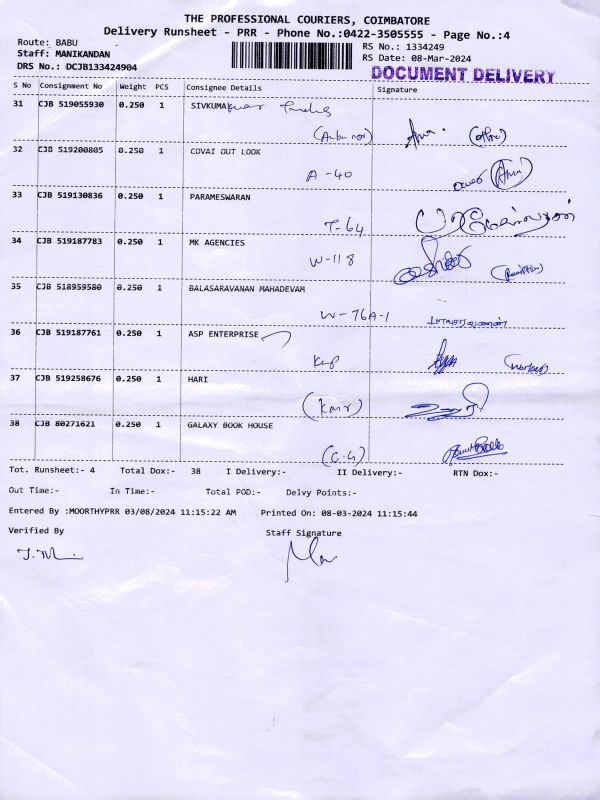 THE PROFESSIONAL COURIERS, COIMBATORE
Delivery Runsheet - PRR - Phone No.:0422-3505555 - Page No.:4
Route: BABU
RS No.: 1334249
Staff: MANIKANDAN
RS Date: 08-Mar-2024
DRS No.: DCJB133424904
DOCUMENT DELIVERY
S No Consignment No Weight PCS Consignee Details Signature
31 CJB 519055930 0.250 1 SIVKUMA
32 CJB 519200805 0.250 1 COVAI OUT LOOK
A-40
33 CJB 519130836 0.250 1 PARAMESWARAN
T-64
34 CJB 519187783 0.250 1 MK AGENCIES
W-118
35 CJB 518959580 0.250 1 BALASARAVANAN MAHADEVAM
W-76A-1
36 CJB 519187761 0.250 1 ASP ENTERPRISE
37 CJB 519258676 0.250 1 HARI
38 CJB 80271621 0.250 1 GALAXY BOOK HOUSE
Tot. Runsheet:- 4 Total Dox:- 38 I Delivery:- II Delivery:- RTN Dox:-
Out Time:- In Time:- Total POD:- Delvy Points:-
Entered By :MOORTHYPRR 03/08/2024 11:15:22 AM Printed On: 08-03-2024 11:15:44
Verified By Staff Signature